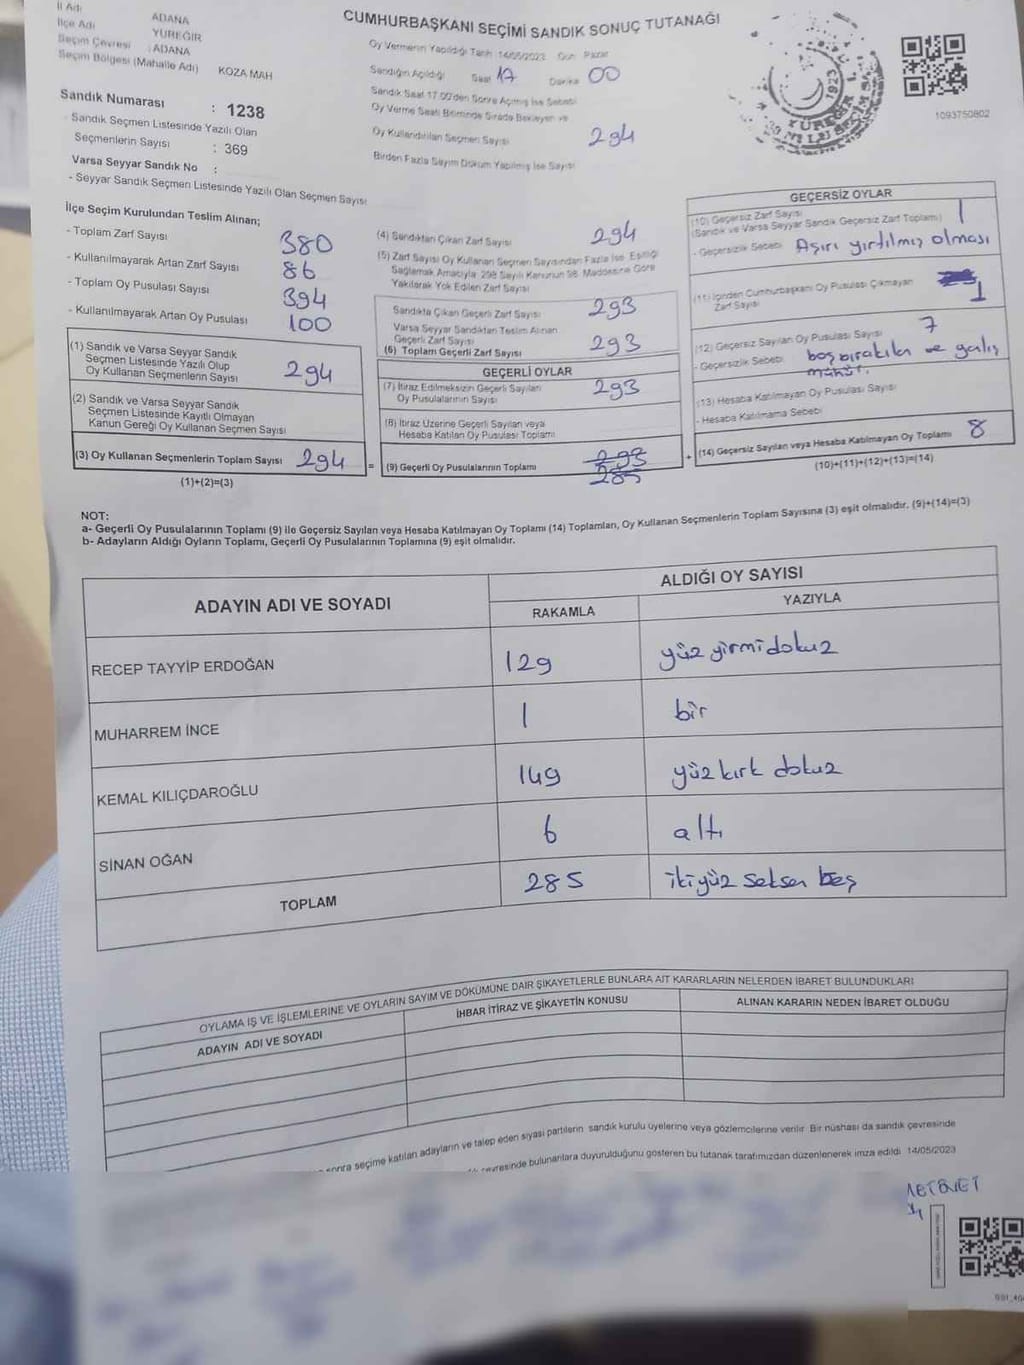 İl Adı ADANA
İlçe Adı YÜREĞİR
Seçim Çevresi : ADANA
Seçim Bölgesi (Mahalle Adı) KOZA MAH
Sandık Numarası : 1238
Sandık Seçmen Listesinde Yazılı Olan
Seçmenlerin Sayısı : 369
Varsa Seyyar Sandık No :
- Seyyar Sandık Seçmen Listesinde Yazılı Olan Seçmen Sayısı
CUMHURBAŞKANI SEÇİMİ SANDIK SONUÇ TUTANAĞI
Oy Vermenin Yapıldığı Tarih 14/05/2023 Gün Pazar
Sandığın Açıldığı Saat 17 Dakika 00
Sandık Saat 17.00'den Sonra Açılmış İse Sebebi
Oy Verme Saati Bitiminde Sırada Bekleyen ve
Oy Kullandırılan Seçmen Sayısı 294
Birden Fazla Sayım Döküm Yapılmış İse Sayısı
1923
YÜREĞİR
1093750802
İlçe Seçim Kurulundan Teslim Alınan;
- Toplam Zarf Sayısı 380
- Kullanılmayarak Artan Zarf Sayısı 86
- Toplam Oy Pusulası Sayısı 394
- Kullanılmayarak Artan Oy Pusulası 100
(1) Sandık ve Varsa Seyyar Sandık
Seçmen Listesinde Yazılı Olup
Oy Kullanan Seçmenlerin Sayısı 294
(2) Sandık ve Varsa Seyyar Sandık
Seçmen Listesinde Kayıtlı Olmayan
Kanun Gereği Oy Kullanan Seçmen Sayısı
(3) Oy Kullanan Seçmenlerin Toplam Sayısı 294 =
(1)+(2)=(3)
(4) Sandıktan Çıkan Zarf Sayısı 294
(5) Zarf Sayısı Oy Kullanan Seçmen Sayısından Fazla İse, Eşitliği
Sağlamak Amacıyla 298 Sayılı Kanunun 98. Maddesine Göre
Yakılarak Yok Edilen Zarf Sayısı
Sandıkta Çıkan Geçerli Zarf Sayısı 293
Varsa Seyyar Sandıktan Teslim Alınan
Geçerli Zarf Sayısı
(6) Toplam Geçerli Zarf Sayısı 293
GEÇERLİ OYLAR
(7) İtiraz Edilmeksizin Geçerli Sayılan
Oy Pusulalarının Sayısı 293
(8) İtiraz Üzerine Geçerli Sayılan veya
Hesaba Katılan Oy Pusulası Toplamı
(9) Geçerli Oy Pusulalarının Toplamı 293
285 +
GEÇERSİZ OYLAR
(10) Geçersiz Zarf Sayısı
(Sandık ve Varsa Seyyar Sandık Geçersiz Zarf Toplamı) 1
- Geçersizlik Sebebi Aşırı yırtılmış olması
(11) İçinden Cumhurbaşkanı Oy Pusulası Çıkmayan
Zarf Sayısı 1
(12) Geçersiz Sayılan Oy Pusulası Sayısı 7
- Geçersizlik Sebebi
mühür.
(13) Hesaba Katılmayan Oy Pusulası Sayısı
- Hesaba Katılmama Sebebi
(14) Geçersiz Sayılan veya Hesaba Katılmayan Oy Toplamı 8
(10)+(11)+(12)+(13)=(14)
NOT:
a- Geçerli Oy Pusulalarının Toplamı (9) ile Geçersiz Sayılan veya Hesaba Katılmayan Oy Toplamı (14) Toplamları, Oy Kullanan Seçmenlerin Toplam Sayısına (3) eşit olmalıdır. (9)+(14)=(3)
b- Adayların Aldığı Oyların Toplamı, Geçerli Oy Pusulalarının Toplamına (9) eşit olmalıdır.
ADAYIN ADI VE SOYADI
ALDIĞI OY SAYISI
RAKAMLA YAZIYLA
RECEP TAYYİP ERDOĞAN 129 yüz yirmidokuz
MUHARREM İNCE 1 bir
KEMAL KILIÇDAROĞLU 149 yüz kırk dokuz
SİNAN OĞAN 6 altı
TOPLAM 285 ikiyüz seksen beş
OYLAMA İŞ VE İŞLEMLERİNE VE OYLARIN SAYIM VE DÖKÜMÜNE DAİR ŞİKAYETLERLE BUNLARA AİT KARARLARIN NELERDEN İBARET BULUNDUKLARI
ADAYIN ADI VE SOYADI İHBAR İTİRAZ VE ŞİKAYETİN KONUSU ALINAN KARARIN NEDEN İBARET OLDUĞU
sonra seçime katılan adayların ve talep eden siyasi partilerin sandık kurulu üyelerine veya gözlemcilerine verilir. Bir nüshası da sandık çevresinde
çevresinde bulunanlara duyurulduğunu gösteren bu tutanak tarafımızdan düzenlenerek imza edildi. 14/05/2023